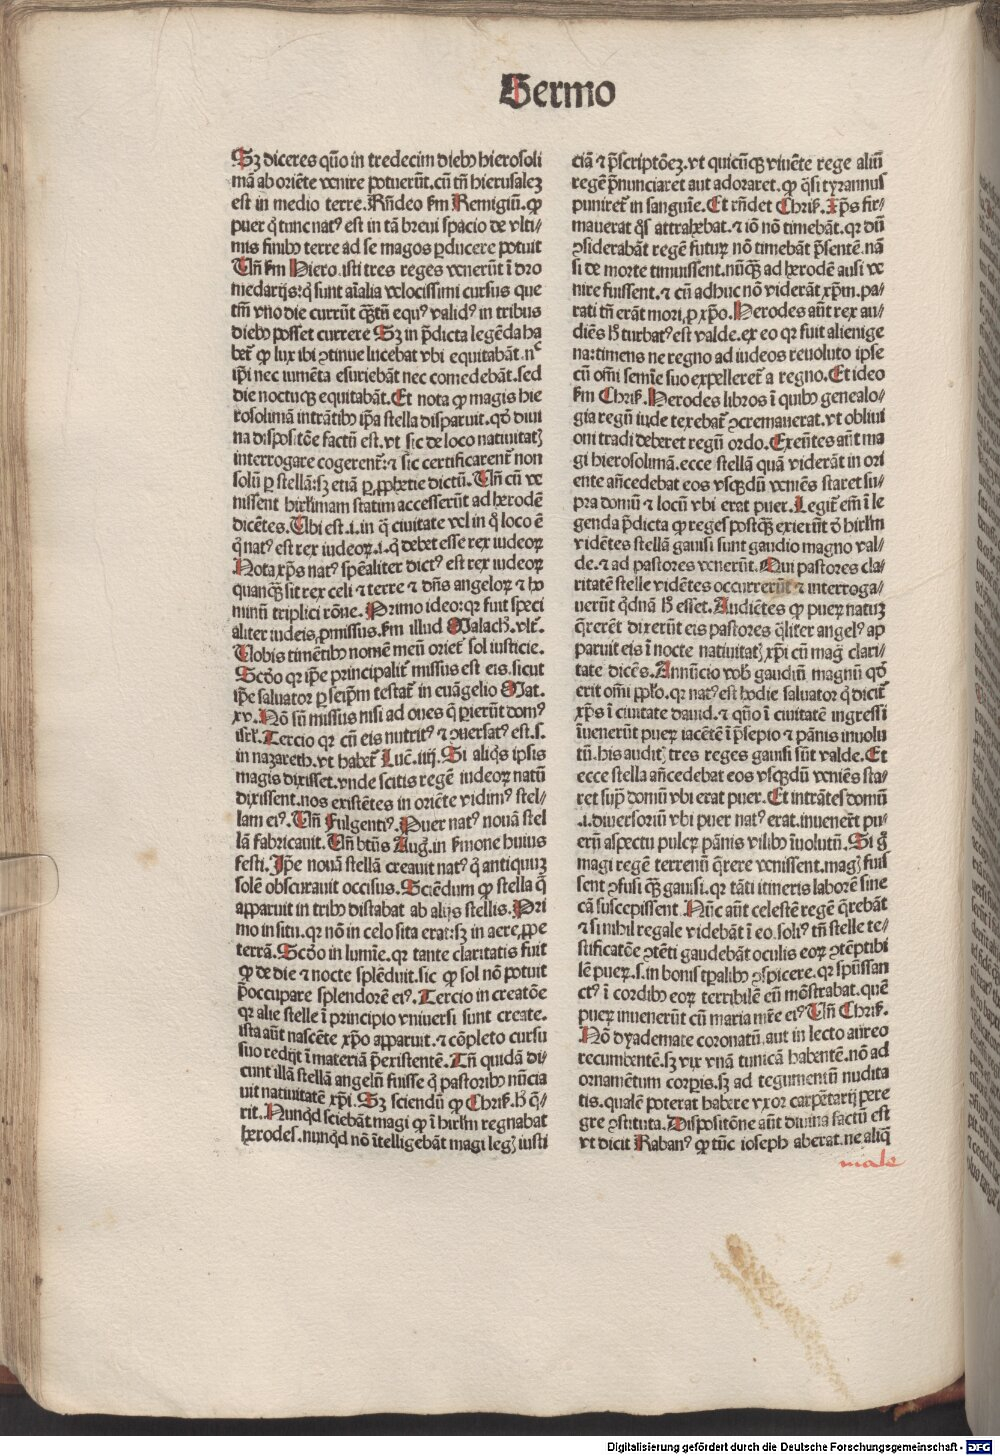 Sermo
Sz diceres qūo in tredecim diebꝰ hierosoli
mā ab oriēte venire potuerūt. cū tñ hierusalez
est in medio terre. Rñdeo ẜm Remigiū. ꝙ
puer q̇ tunc natꝰ est in tā breui spacio de vlti-
mis finibꝰ terre ad se magos ꝑducere potuit
Uñ ẜm Hiero. isti tres reges venerūt ī dro
medarijs: q̄ sunt aīalia velocissimi cursus que
tm̄ vno die currūt qᷓꝫtū equꝰ validꝰ in tribus
diebꝰ posset currere Sꝫ in p̄dicta legēda ha
bet̃ ꝙ lux ibi ꝯtinue lucebat vbi equitabāt. nᶜ
ip̄i nec iumēta esuriebāt nec comedebāt. sed
die noctuqꝫ equitabāt. Et nota ꝙ magis hie
rosolimā intrātibꝰ ip̄a stella disparuit. qd̓ diui
na dispositōe factū est. vt sic de loco natiuitatꝭ
interrogare cogerent̃: ⁊ sic certificarent̃ non
solū ꝑ stellā: sꝫ etiā ꝑ ꝓphetie dictū. Uñ cū ve
nissent hirłmam statim accesserūt ad herodē
dicētes. Ubi est .i. in q̄ ciuitate vel in q̊ loco ē
q̇ natꝰ est rex iudeoꝝ .i. q̇ debet esse rex iudeoꝝ
Nota xp̄s natꝰ sp̄ealiter dictꝰ est rex iudeoꝝ
quanqᷓꝫ sit rex celi ⁊ terre ⁊ dñs angeloꝝ ⁊ ho
minū triplici rōne. Primo ideo: qꝛ fuit speci
aliter iudeis ꝓmissus. ẜm illud Malach. vlt̃.
Uobis timētibꝰ nomē meū oriet̃ sol iusticie.
Scd̓o qꝛ ip̄e principalit̃ missus est eis. sicut
ip̄e saluator ꝑ seip̄m testat̃ in euāgelio Mat.
xv. Nō sū missus nisi ad oues q̄ ꝑierūt domꝰ
isrł. Tercio qꝛ cū eis nutritꝰ ⁊ ꝯuersatꝰ est .s.
in nazareth. vt habet̃ Luc̄. iiij. Si aliq̇s ipsis
magis dixisset. vnde scitis regē iudeoꝝ natū
dixissent. nos existētes in oriēte vidimꝰ stel-
lam eiꝰ. Uñ Fulgentiꝰ. Puer natꝰ nouā stel
lā fabricauit. Uñ btūs Aug̃. in ẜmone huius
festi. Ip̄e nouā stellā creauit natꝰ q̇ antiquuz
solē obscurauit occisus. Sciēdum ꝙ stella q̄
apparuit in tribꝰ distabat ab alijs stellis. Pri
mo in situ. qꝛ nō in celo sita erat: sꝫ in aere, ꝓpe
terrā. Scd̓o in lumīe. qꝛ tante claritatis fuit
ꝙ de die ⁊ nocte splēduit. sic ꝙ sol nō potuit
p̄occupare splendorē eiꝰ. Tercio in creatōe
qꝛ alie stelle ī principio vniuersi sunt create.
ista aūt nascēte xp̄o apparuit. ⁊ cōpleto cursu
suo redijt ī materiā p̄existentē. Tñ quidā di-
cunt illā stellā angelū fuisse q̇ pastoribꝰ nūcia
uit natiuitatē xp̄i. Sꝫ sciendū ꝙ Chriſ. h̓ q̄-
rit. Nunqd̓ sciebāt magi ꝙ ī hirłm regnabat
herodes. nunqd̓ nō ītelligebāt magi legꝭ iusti
ciā ⁊ p̄scriptōeꝫ. vt quicūqꝫ viuēte rege aliū
regē p̄nunciaret aut adoraret. ꝙ q̄si tyrannus
puniret̃ in sanguīe. Et rñdet Chriſ. Xp̄s fir-
mauerat q̊s attrahebat. ⁊ iō nō timebāt. qꝛ dū
ꝯsiderabāt regē futuꝝ nō timebāt p̄sentē. nā
si de morte timuissent. nūqᷓꝫ ad herodē ausi ve
nire fuissent. ⁊ cū adhuc nō viderāt xp̄m. pa-
rati tñ erāt mori, ꝓ xp̄o. Herodes aūt rex au-
diēs h̓ turbatꝰ est valde. ex eo qꝛ fuit alienige
na: timens ne regno ad iudeos reuoluto ipse
cū om̄i semīe suo expelleret̃ a regno. Et ideo
ẜm Chriſ. Herodes libros ī quibꝰ genealo-
gia regū iude texebat̃ ꝯcremauerat. vt obliui
oni tradi deberet regū ordo. Exeūtes aūt ma
gi hierosolimā. ecce stellā quā viderāt in ori
ente añcedebat eos vsqꝫdū veniēs staret su-
pra domū ⁊ locū vbi erat puer. Legit̃ em̄ ī le
genda p̄dicta ꝙ reges postqᷓꝫ exierūt d̓ hirłm
vidētes stellā gauisi sunt gaudio magno val-
de. ⁊ ad pastores venerūt. Qui pastores cla-
ritatē stelle vidētes occurrerūt ⁊ interroga-
uerūt qd̓nā h̓ esset. Audiētes ꝙ pueꝝ natuꝫ
q̄rerēt dixerūt eis pastores q̄liter angelꝰ ap
paruit eis ī nocte natiuitatꝭ xp̄i cū mag̃ clari-
tate dicēs. Annūcio vob̓ gaudiū magnū qd̓
erit om̄i pp̄ło. qꝛ natꝰ est hodie saluator q̇ dicit̃
xp̄s ī ciuitate dauid. ⁊ qūo ī ciuitatē ingressi
īuenerūt pueꝝ iacētē ī p̄sepio ⁊ pānis inuolu
tū. his auditꝭ tres reges gauisi sūt valde. Et
ecce stella añcedebat eos vsqꝫdū veniēs sta-
ret supͣ domū vbi erat puer. Et intrātes domū
.i. diuersoriū vbi puer natꝰ erat. inuenerūt pu-
erū aspectu pulcꝝ pānis vilibꝰ īuolutū. Si g̊
magi regē terrenū q̄rere venissent. magꝭ fuis
sent ꝯfusi qᷓꝫ gauisi. qꝛ tāti itineris laborē sine
cā suscepissent. Nūc aūt celestē regē q̄rebāt
⁊ si nihil regale videbāt ī eo. soliꝰ tñ stelle te-
stificatōe ꝯtēti gaudebāt oculis eoꝝ ꝯtēptibi
lē pueꝝ .s. in bonis tp̄alibꝰ ꝯspicere. qꝛ sp̄ūssan
ctꝰ ī cordibꝰ eoꝝ terribilē eū mōstrabat. quē
pueꝝ inuenerūt cū maria mr̄e eiꝰ Uñ Chriſ.
Nō dyademate coronatū. aut in lecto aureo
recumbentē. sꝫ vix vnā tunicā habentē. nō ad
ornamētum corꝑis. sꝫ ad tegumentū nudita
tis. qualē poterat habere vxor carpētarij pere
gre ꝯstituta. Dispositōne aūt diuina factū est
vt dicit Rabanꝰ ꝙ tūc ioseph aberat. ne aliq̇
male
Digitalisierung gefördert durch die Deutsche Forschungsgemeinschaft - DFG